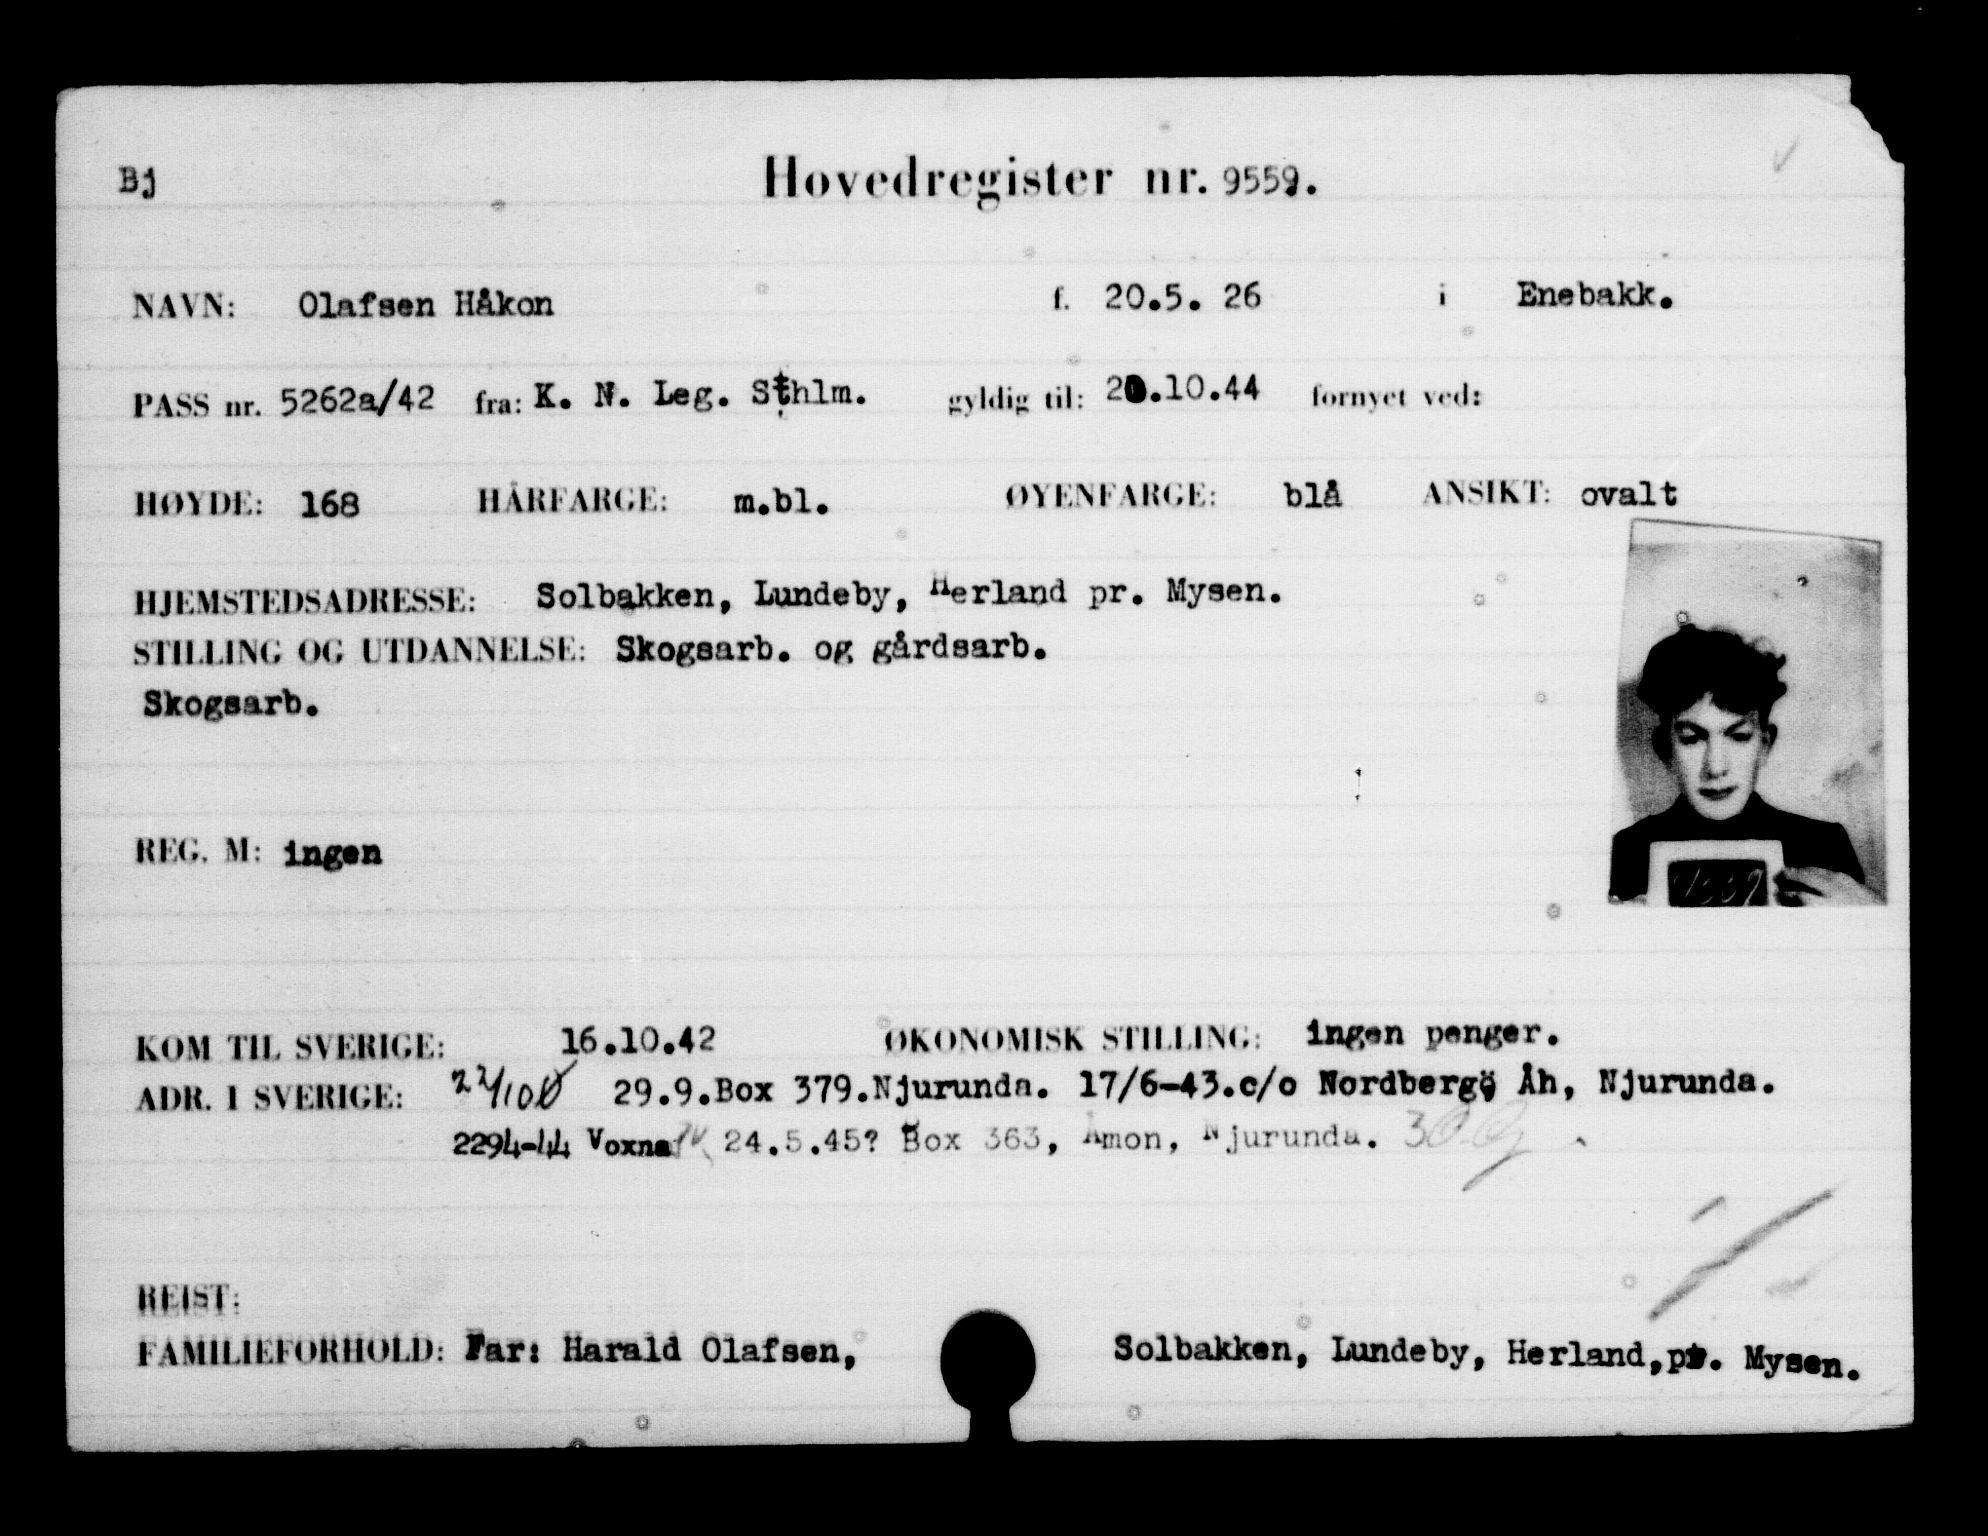 Bj
Hovedregister nr. 9559.
NAVN: Olafsen Håkon f. 20.5. 26 i Enebakk.
PASS nr. 5262a/42 fra: K. N. Leg. Sthlm. gyldig til: 20.10.44 fornyet ved:
HØYDE: 168 HÅRFARGE: m.bl. ØYENFARGE: blå ANSIKT: ovalt
HJEMSTEDSADRESSE: Solbakken, Lundeby, Herland pr. Mysen.
STILLING OG UTDANNELSE: Skogsarb. og gårdsarb.
Skogsarb.
REG. M: ingen
KOM TIL SVERIGE: 16.10.42 ØKONOMISK STILLING: ingen penger.
ADR. I SVERIGE: 29.9.Box 379.Njurunda. 17/6-43.c/o Nordbergö Åh, Njurunda.
2294-44 Voxna 24.5.45? Box 363, Åmon, Njurunda.
REIST:
FAMILIEFORHOLD: Far: Harald Olafsen, Solbakken, Lundeby, Herland,pr. Mysen.